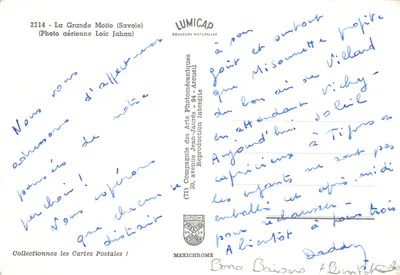 2214 - La Grande Motte (Savoie)
(Photo aérienne Loïc Jahan)
Nous vous
adressons d'affectueuses
pensées de notre
perchoir !
Nous espérons
que chacun se
distrait
Collectionnez les Cartes Postales !
LUMICAP
COULEURS NATURELLES
(71) Compagnie des Arts Photomécaniques
39, avenue Jean-Jaurès - 94 - Arcueil
Reproduction interdite
MEXICHROME
à son
goût et surtout
que Misounette profite
du bon air de Villard
en attendant Vichy.
Aujourd'hui soleil
capricieux à Tignes
les enfants ne sont pas
emballés et après midi
pour rechausser
A bientôt à tous trois
Daddy
Bons Baisers A Bientôt